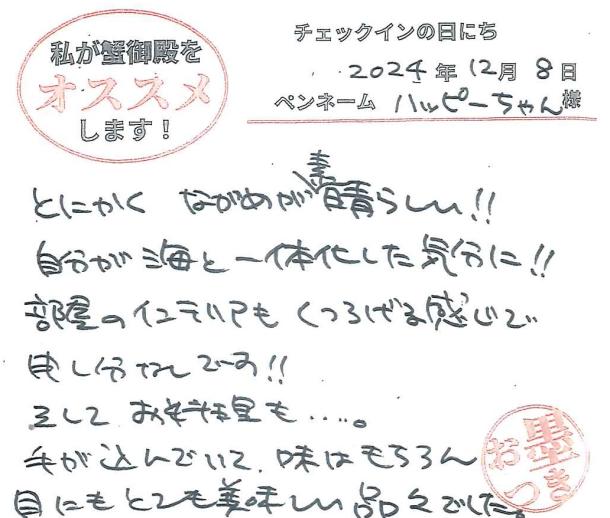 私が蟹御殿を
オススメ
します！
チェックインの日にち
2024年12月8日
ペンネーム ハッピーちゃん様
とにかく ながめが素晴らしい!!
自分が海と一体化した気分に!!
部屋のインテリアもくつろげる感じで
申し分なしです!!
そして お料理も……。
手が込んでいて、味はもちろん
目にもとても美味しい品々でした。
お墨つき